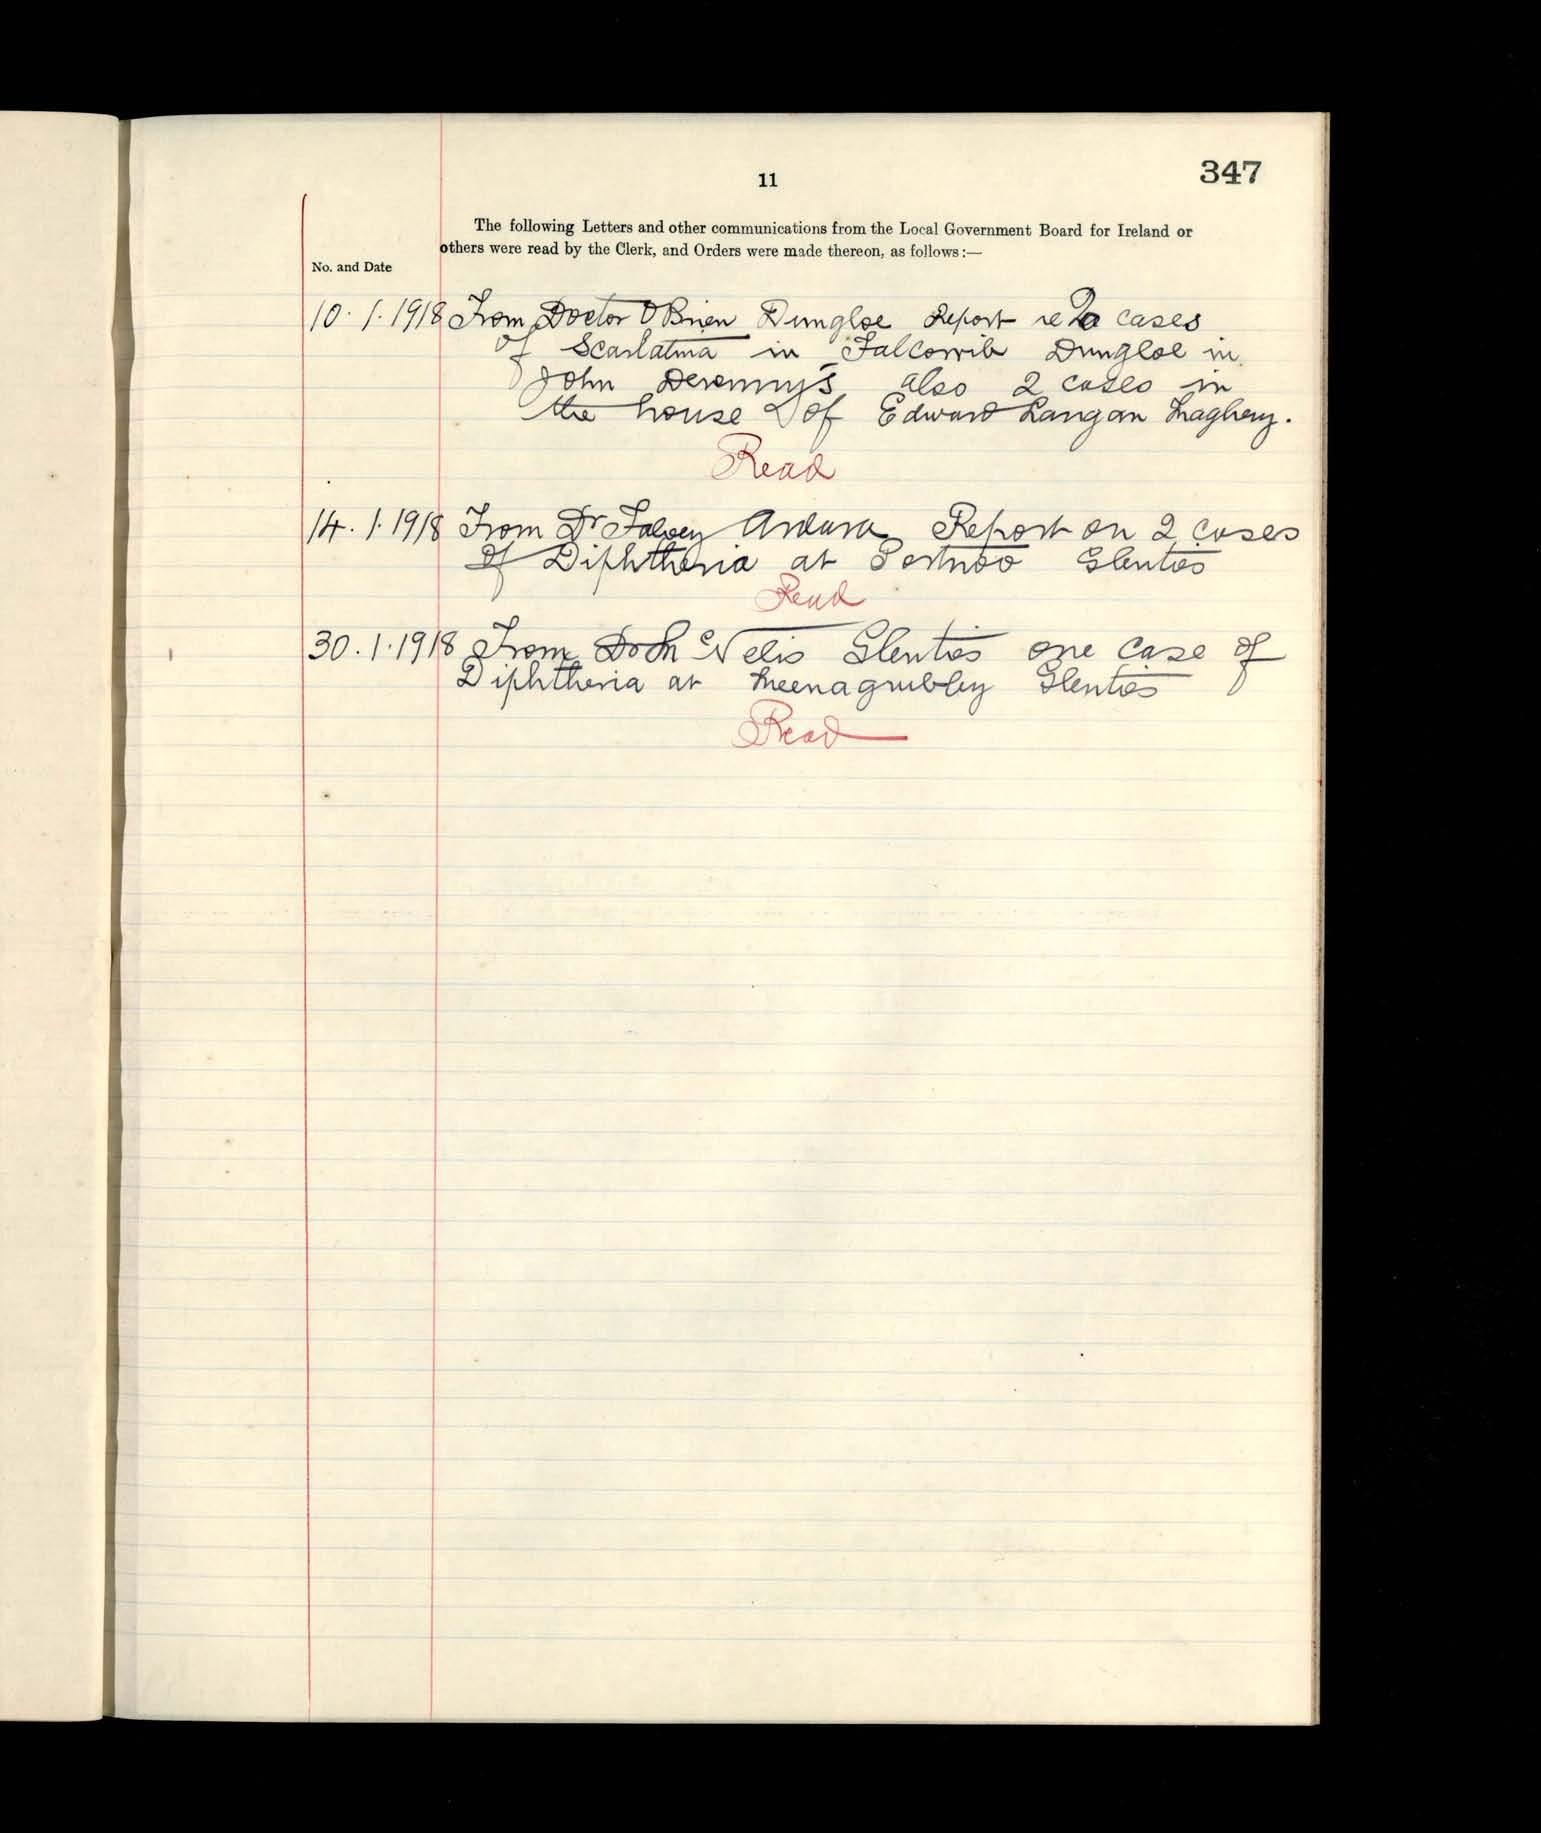 347
11
The following Letters and other communications from the Local Government Board for Ireland or
others were read by the Clerk, and Orders were made thereon, as follows:—
No. and Date
10.1.1918 From Doctor O'Brien Dungloe Report re 2 cases
of Scarlatina in Falcorrib Dungloe in
John also 2 cases in
the house of Edward Langan Maghery.
Read
14.1.1918 From Dr Falvey Ardara Report on 2 cases
of Diphtheria at Portnoo Glenties
Read
30.1.1918 From Dr McNelis Glenties one case of
Diphtheria at Meenagrubbey Glenties
Read